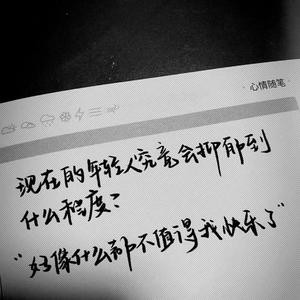 ·心情随笔·
现在的年轻人究竟会抑郁到
什么程度？
“好像什么都不值得我快乐了”